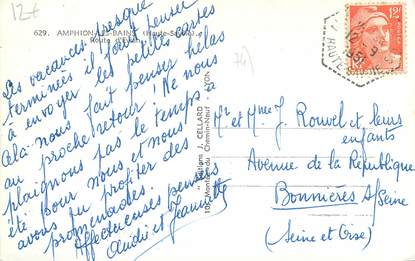 12€
629. AMPHION-LES-BAINS (Haute-Savoie)
Route d'Évian
Les vacances presque
terminées il faut penser
à envoyer les petites cartes
Cela nous fait penser hélas
au proche retour! Ne nous
plaignons pas le temps a
été pour nous et nous
avons pu profiter des
promenades.
Affectueuses pensées
André et Jeannette
Editions J. CELLARD
106, Montée du Chemin-Neuf - LYON
74)
12F
POSTES
HAUTE
1951
Mr et Mme J. Rouvel et leurs
enfants
Avenue de la République
Bonnières s/Seine
(Seine et Oise)